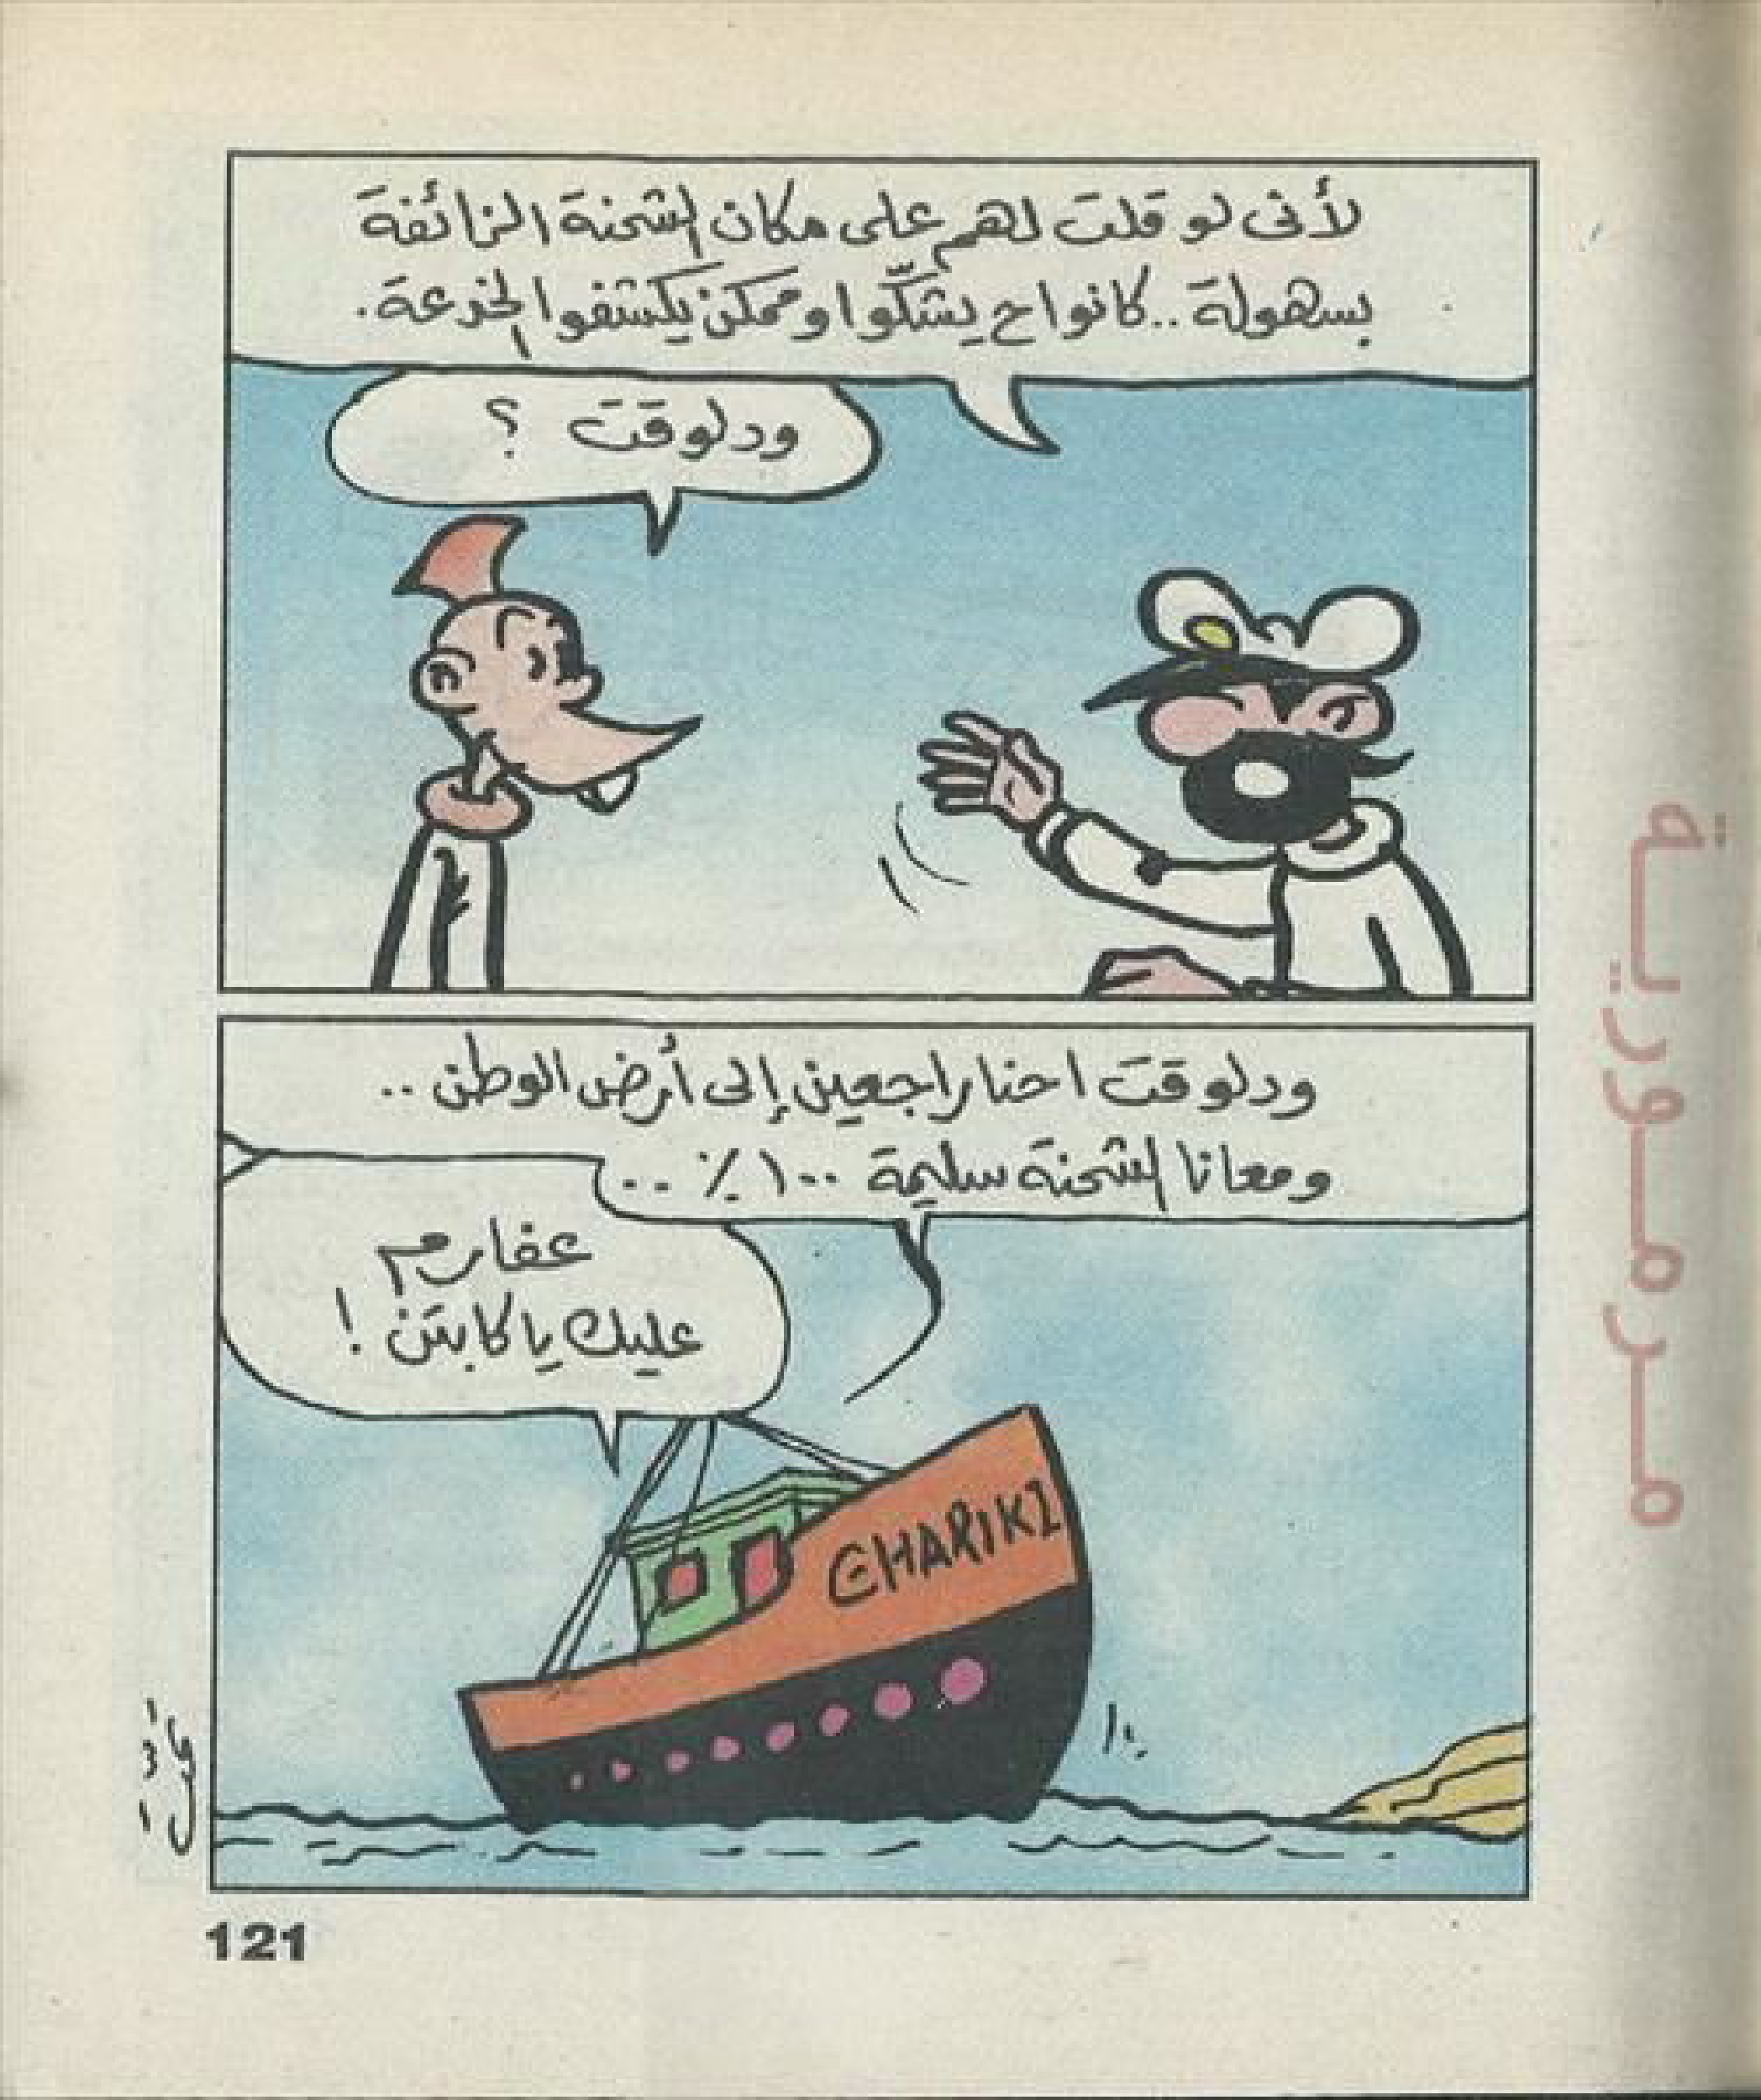 لأنى لو قلت لهم على مكان الشحنة الزائفة
بسهولة .. كانوا ح يشكّوا وممكن يكتشفوا الخدعة .
ودلوقت ؟
ودلوقت احنا راجعين إلى أرض الوطن ..
ومعانا الشحنة سليمة ١٠٠ ٪ ..
عفارم
عليك يا كابتن !
GHARIKI
121
مرمورية